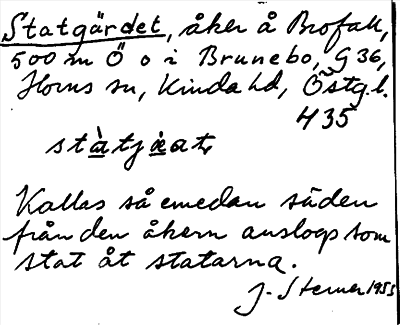 Statgärdet, åker å Brofall,
500 m Ö o i Brunebo, G 36,
Horns sn, Kinda hd, Östg. l.
435
Kallas så emedan säden
från den åkern anslogs som
stat åt statarna.
J. Sterner 1953